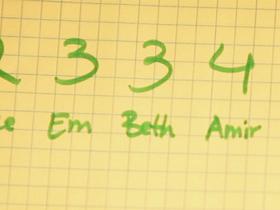 2 3 3 4
e Em Beth Amir